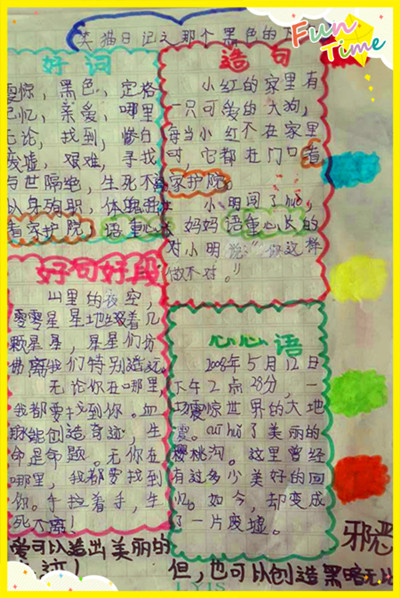 笑猫日记之那个黑色的
Fun
Time
好词
惊，黑色，定格
记忆，亲爱，哪里
无论，找到，惨白
废墟，艰难，寻找
与世隔绝，生死不
看家护院，语重心长
造句
小红的家里有
一只可爱的大狗，
每当小红不在家里
时，它都在门口看
家护院。
小明闯了祸，
妈妈语重心长的
对小明说："你这样
做不对。"
好句好段
山里的夜空，
零零星星地缀着几
颗星星，星星们仿
佛离我们特别遥远
无论你在哪里
我都要找到你。血
脉能创造奇迹，生
命是命题。无你在
哪里，我都要找到
你。手拉着手，生
死不离！
心心语
2008年5月12日
下午2点28分，一
场震惊世界的大地
震。了美丽的
樱桃沟。这里曾经
有过多少美好的回
忆。如今，却变成
了一片废墟。
爱可以造出美丽的
迹！
邪恶
但，也可以创造黑暗无比